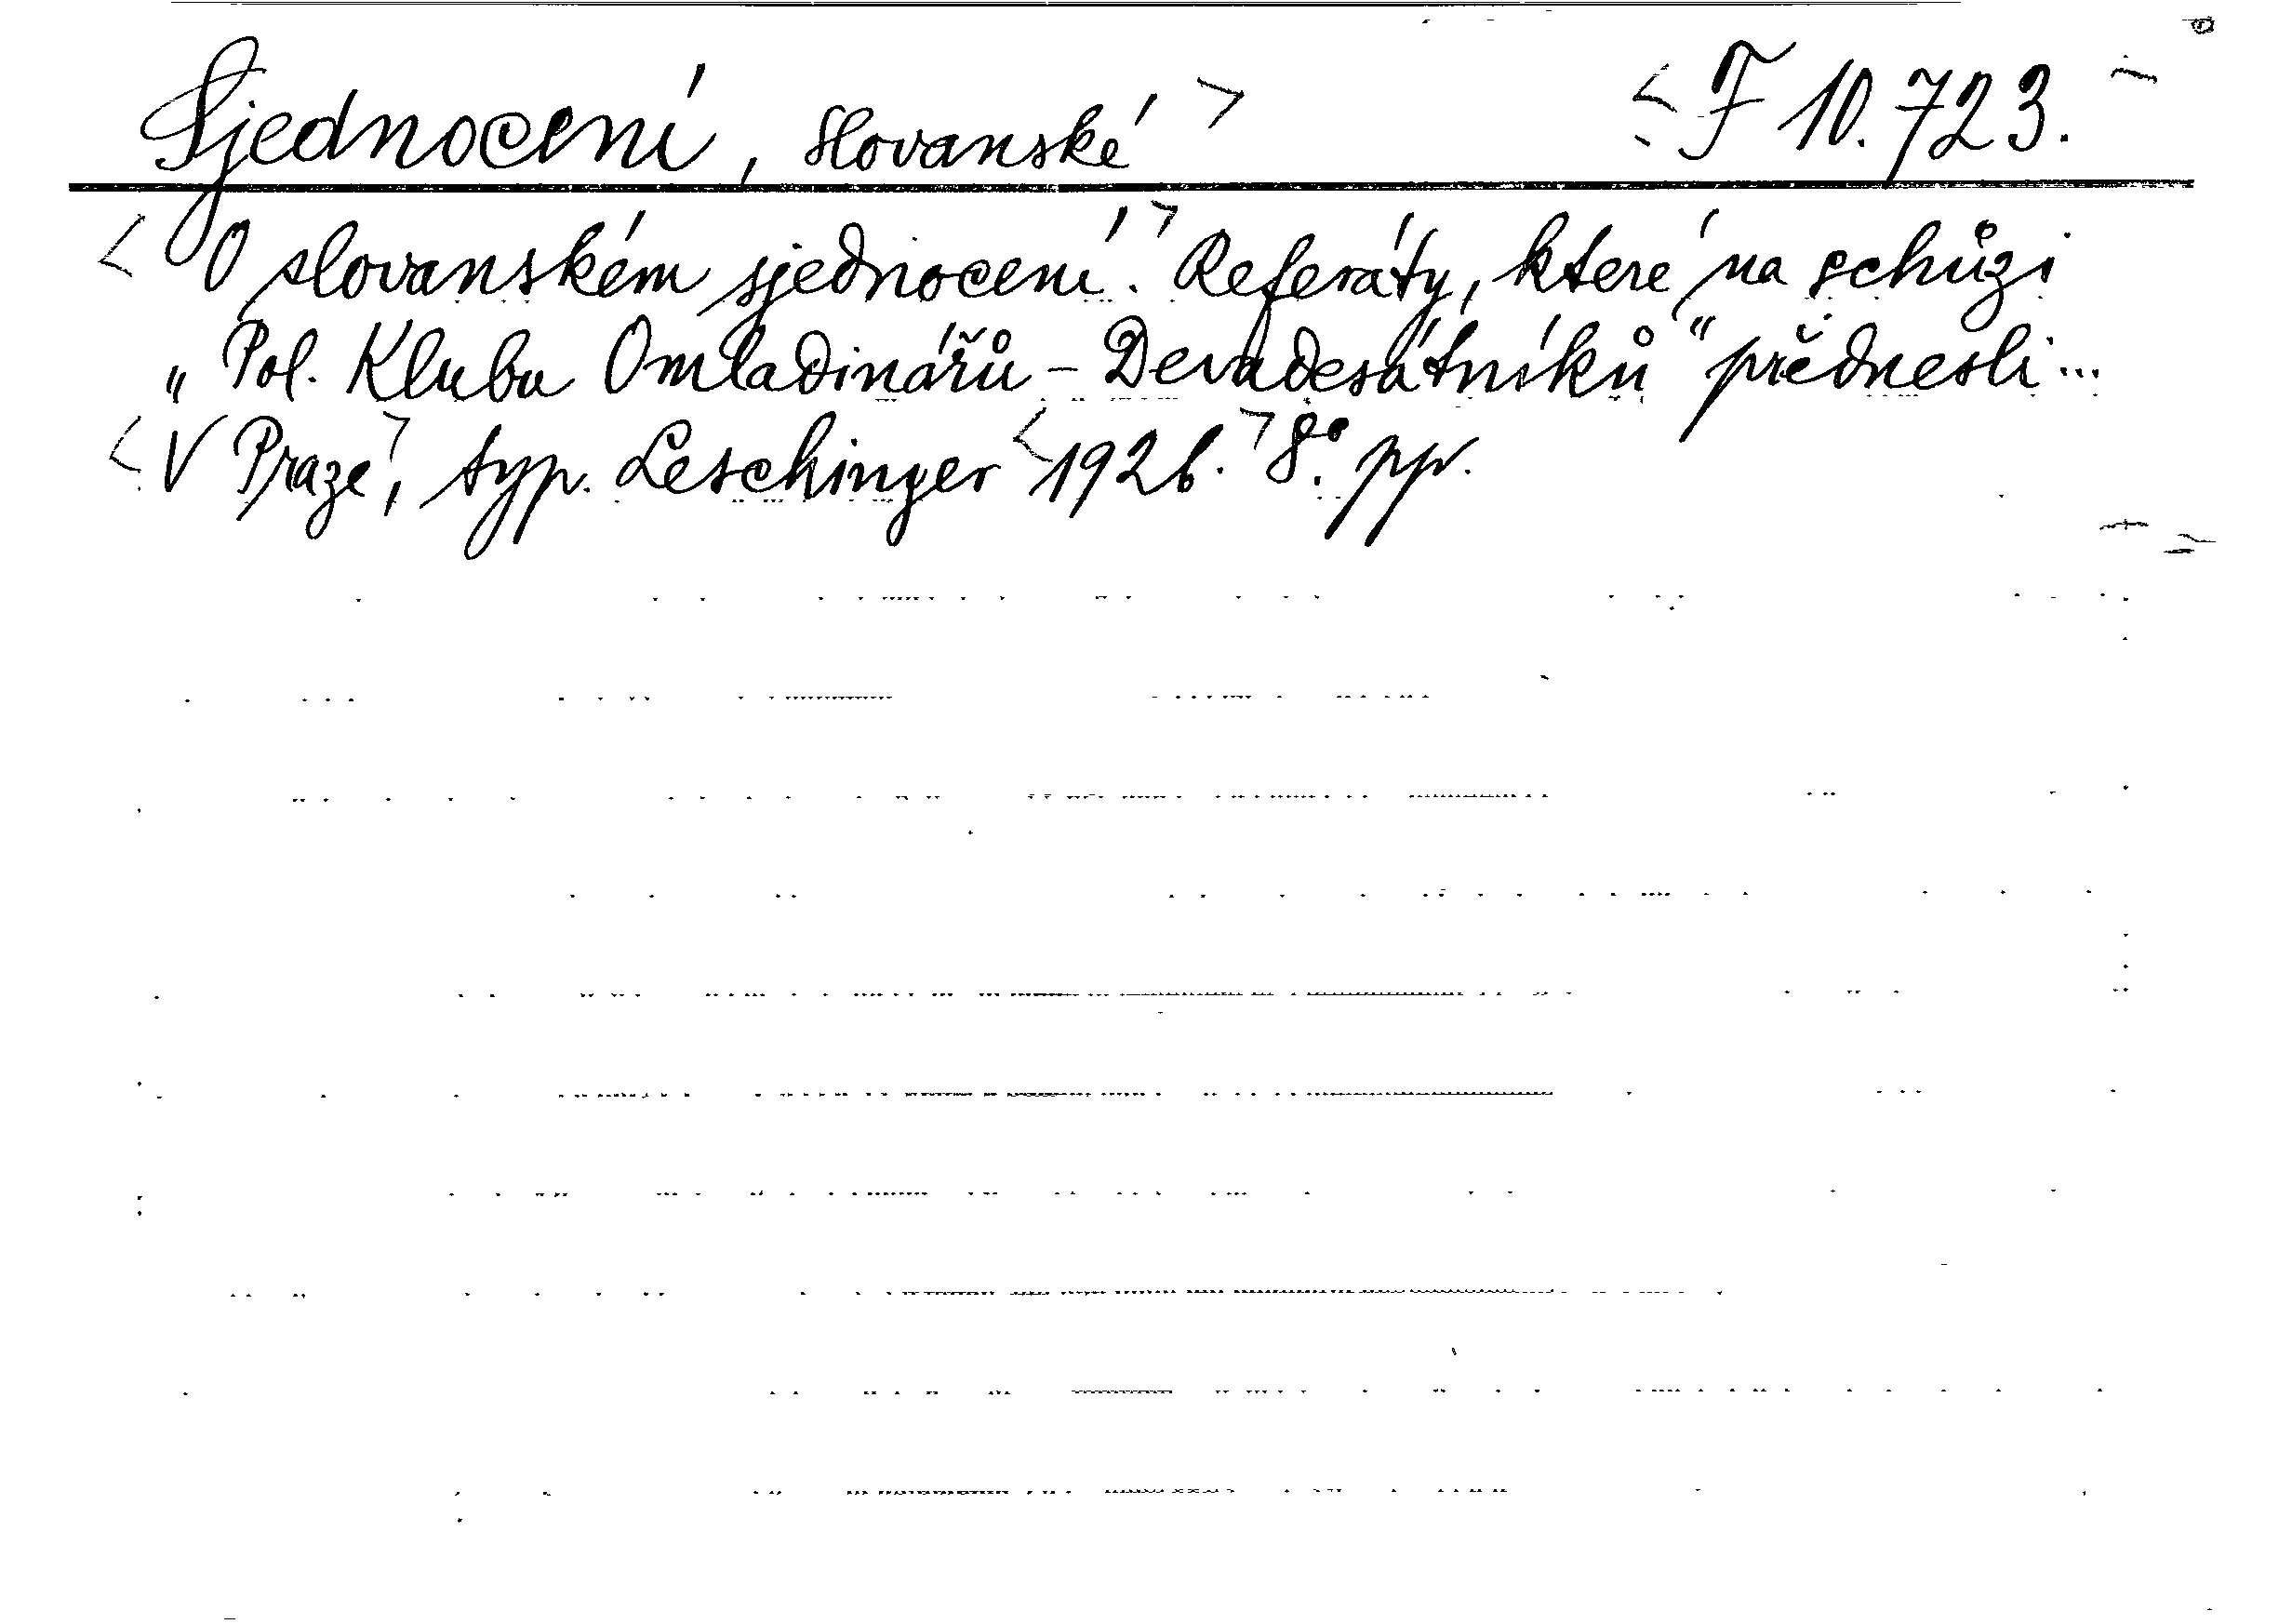 Sjednocení, slovanské > < F 10.723.
< O slovanském sjednocení.> Referáty, které na schůzi
„Pol. Klubu Omladinářů - Devadesátníků“ přednesli...
< V Praze,> typ. Leschinger <1926.> 8°. pp.